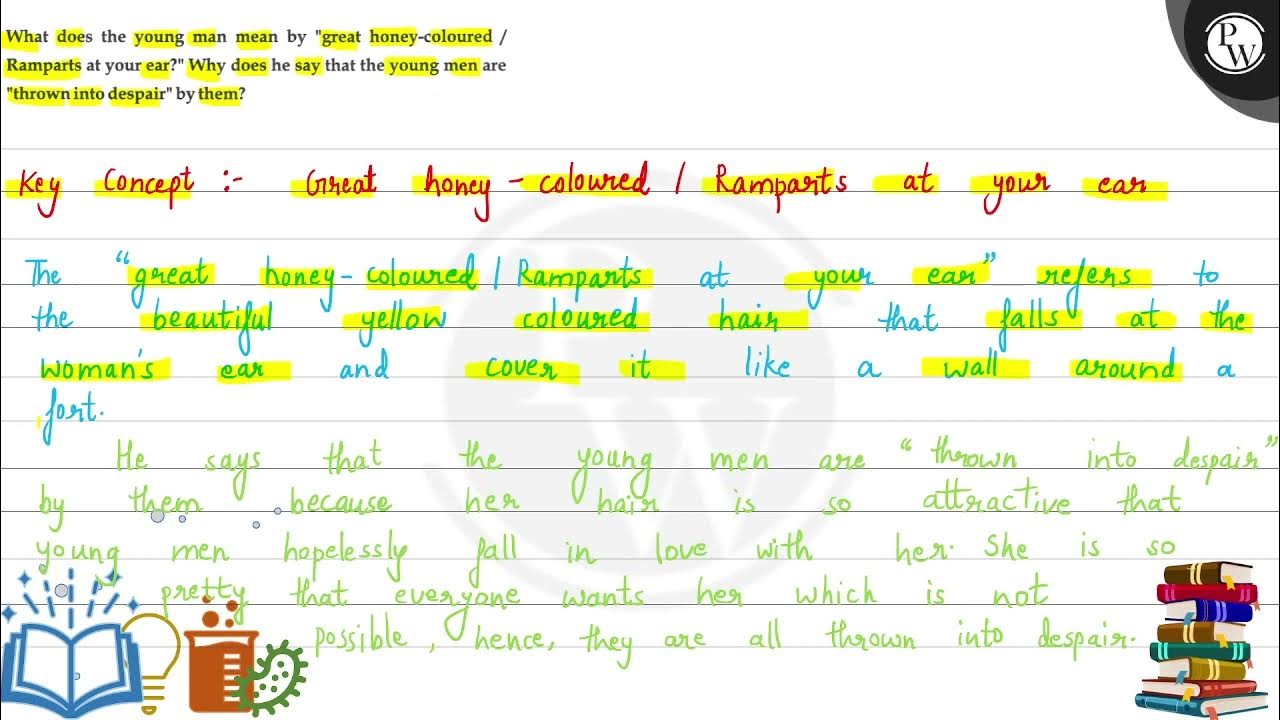 What does the young man mean by "great honey-coloured /
Ramparts at your ear?" Why does he say that the young men are
"thrown into despair" by them?
PW
Key Concept :- Great honey - coloured / Ramparts at your ear
The "great honey - coloured / Ramparts at your ear" refers to
the beautiful yellow coloured hair that falls at the
woman's ear and cover it like a wall around a
fort.
He says that the young men are "thrown into despair"
by them because her hair is so attractive that
young men hopelessly fall in love with her. She is so
pretty that everyone wants her which is not
possible, hence, they are all thrown into despair.